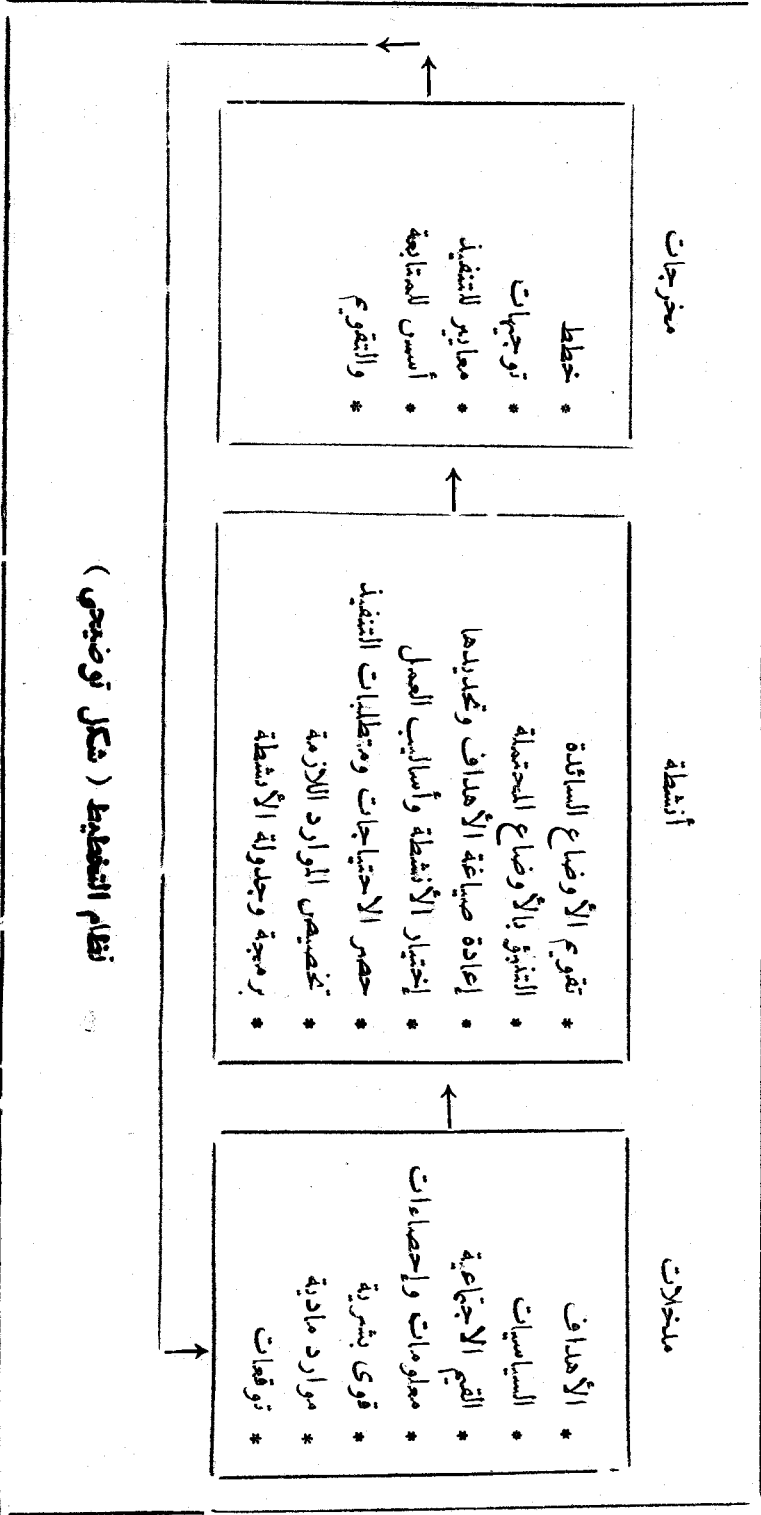 مدخلات
* الأهداف
* السياسيات
* القيم الاجتماعية
* معلومات وإحصاءات
* قوى بشرية
* موارد مادية
* توقعات
أنشطة
* تقويم الأوضاع السائدة
* التنبؤ بالأوضاع المحتملة
* إعادة صياغة الأهداف وتحديدها
* إختيار الأنشطة وأساليب العمل
* حصر الاحتياجات ومتطلبات التنفيذ
* تخصيص الموارد اللازمة
* برمجة وجدولة الأنشطة
مخرجات
* خطط
* توجيهات
* معايير للتنفيذ
* أسس للمتابعة
* والتقويم
نظام التخطيط ( شكل توضيحي )